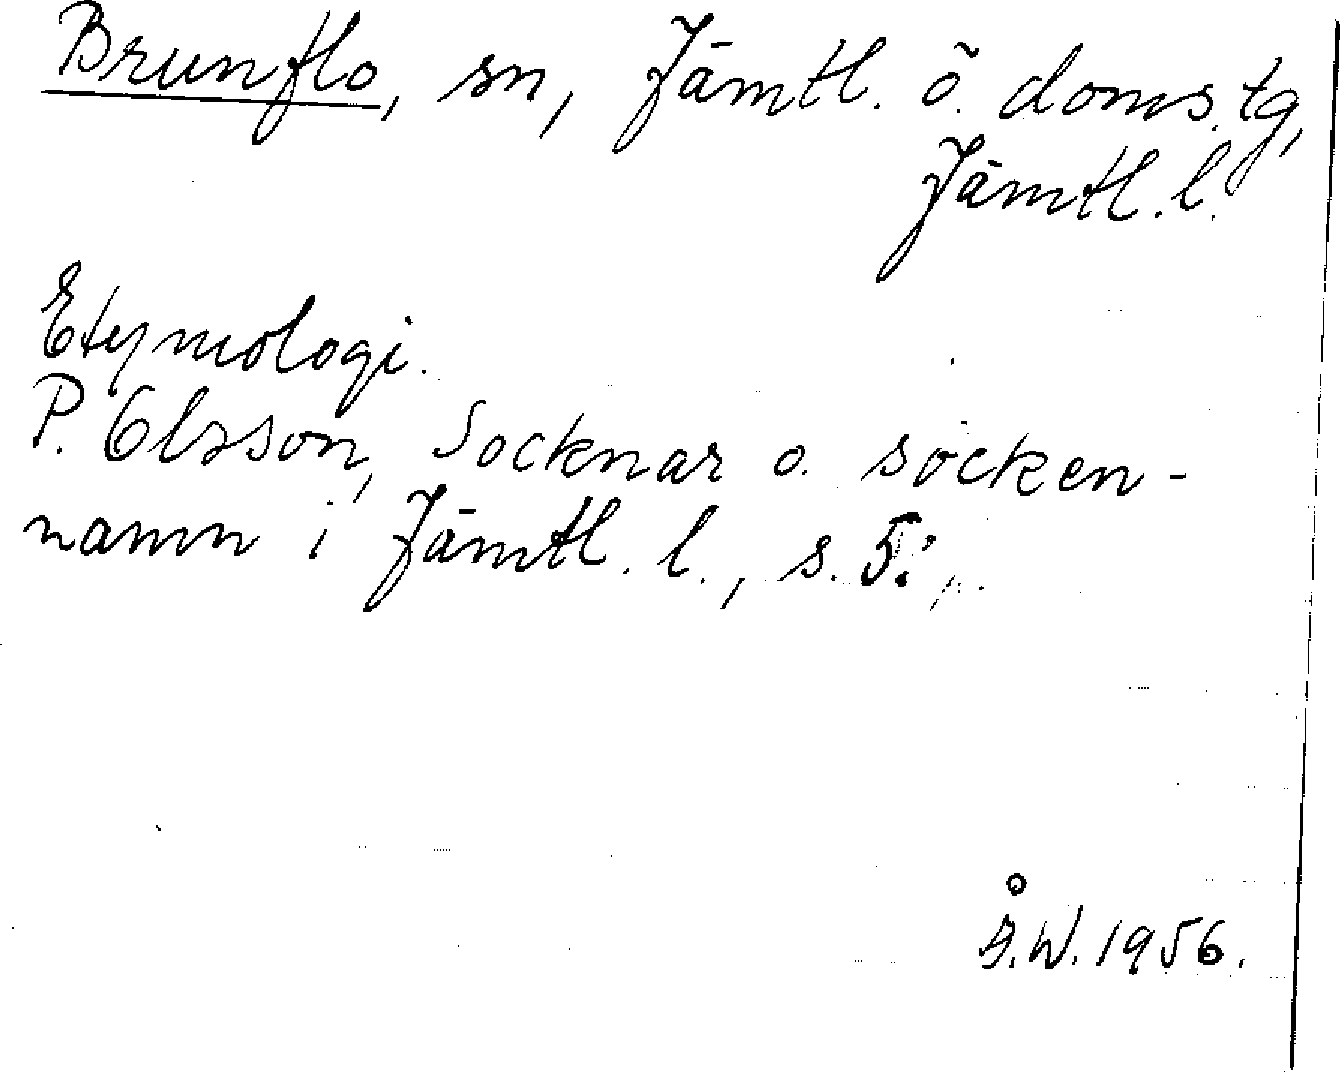 Brunflo, sn, Jämtl. ö. doms.tg,
Jämtl. l.
Etymologi.
P. Olsson, Socknar o. socken-
namn i Jämtl. l., s. 5.
Å.W. 1956.